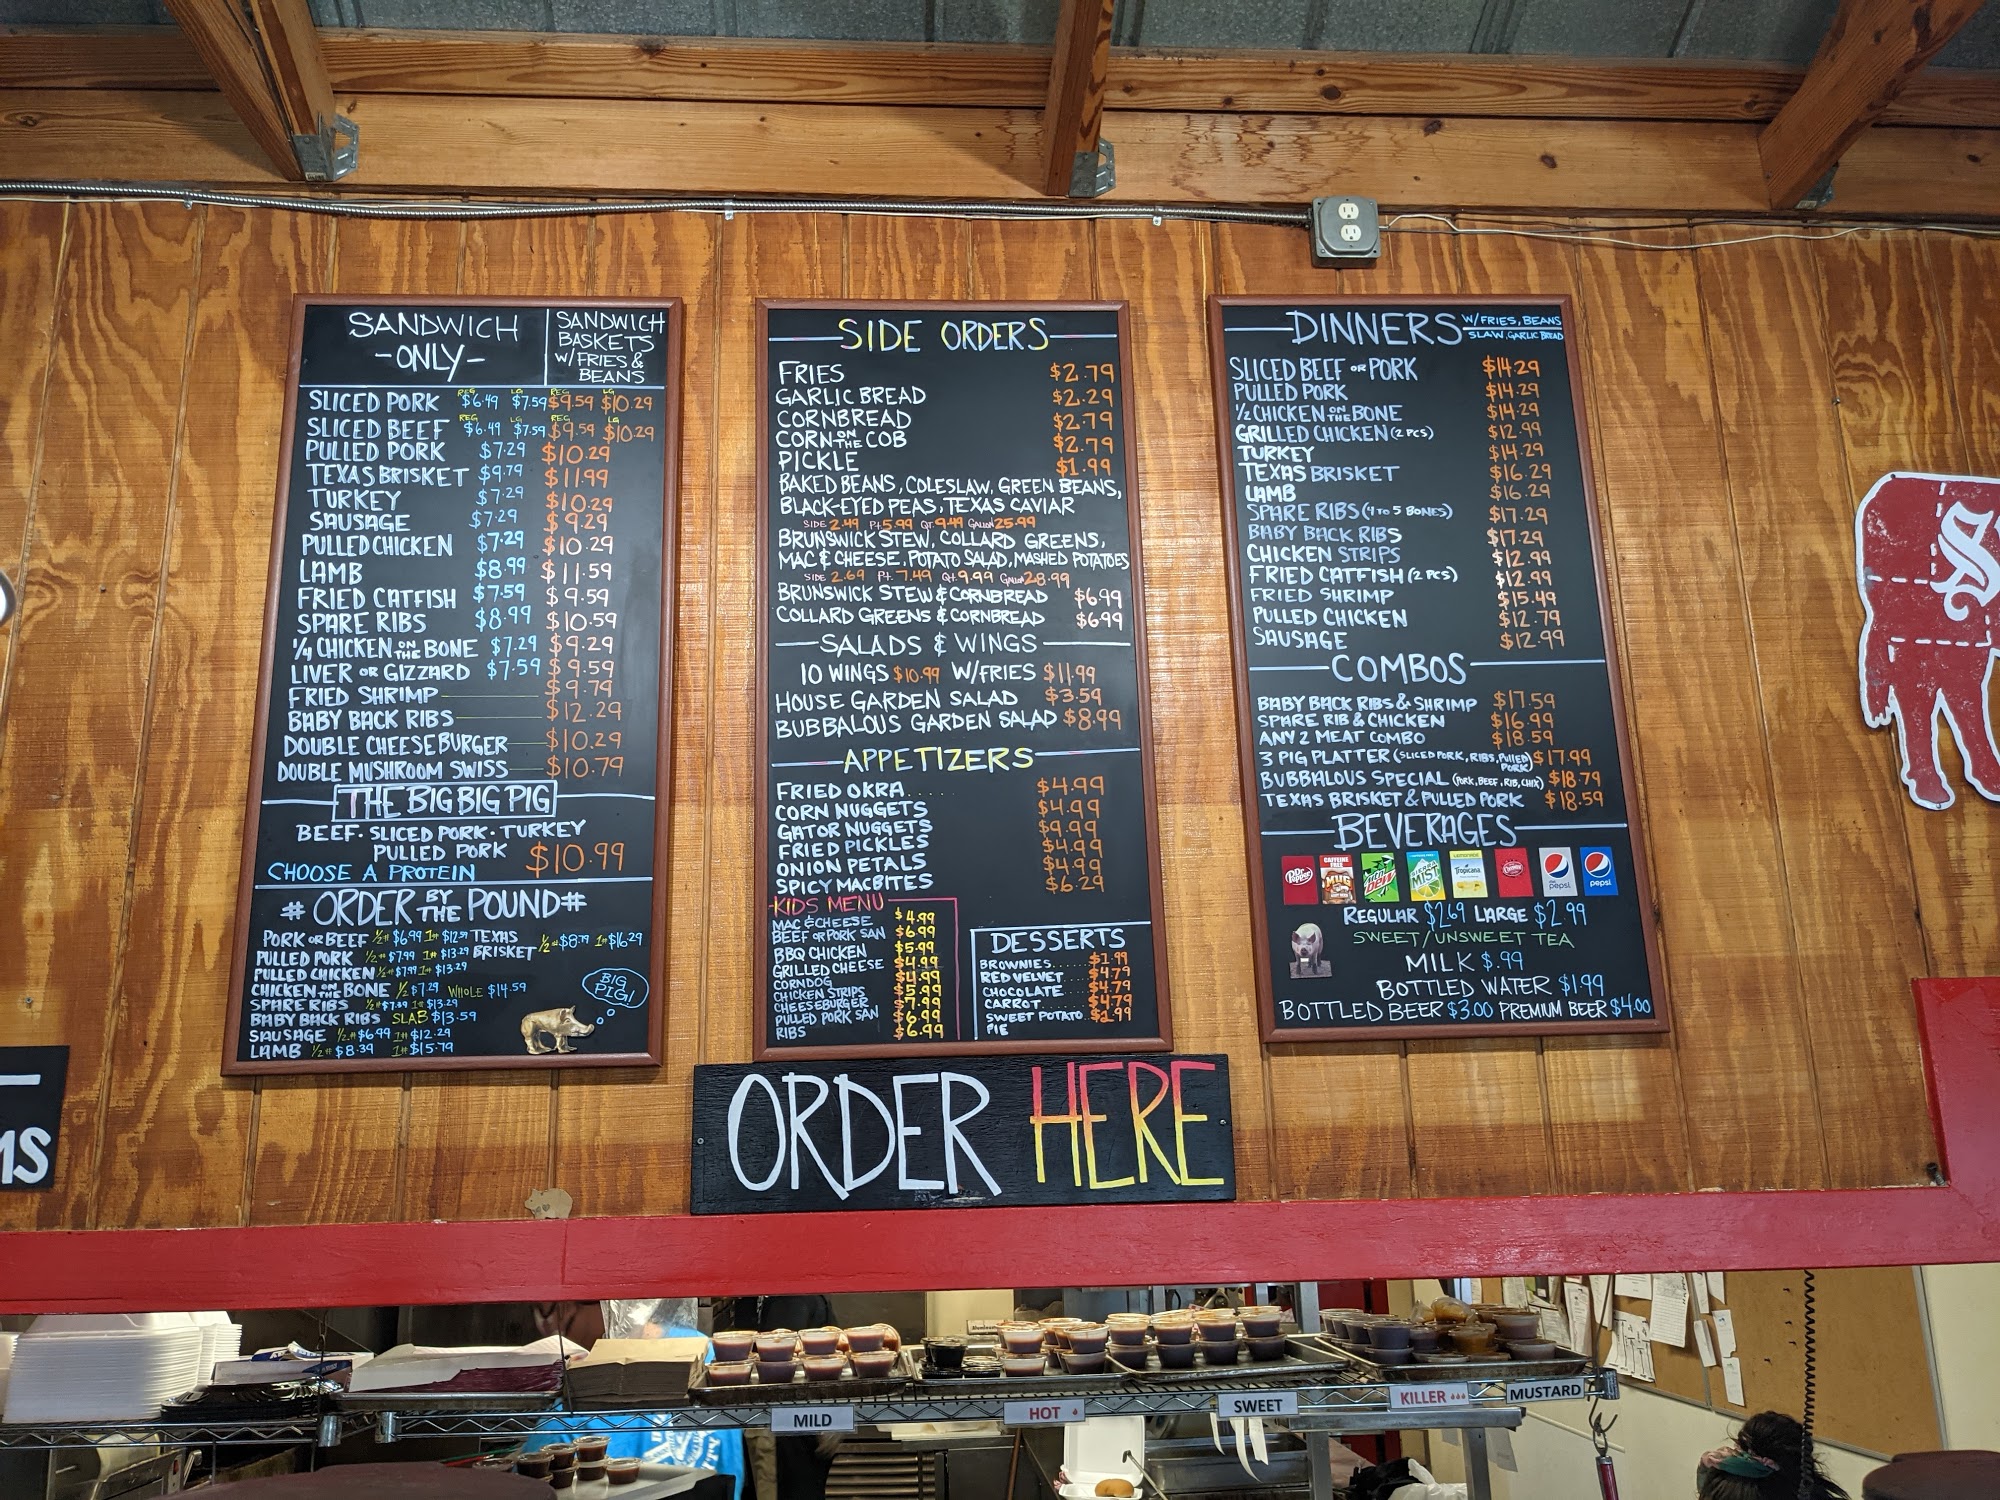 SANDWICH
-ONLY-
SANDWICH
BASKETS
W/FRIES &
BEANS
SLICED PORK REG $6.49 LG $7.59 REG $9.59 LG $10.29
SLICED BEEF REG $6.49 LG $7.59 REG $9.59 LG $10.29
PULLED PORK $7.29 $10.29
TEXAS BRISKET $9.79 $11.99
TURKEY $7.29 $10.29
SAUSAGE $7.29 $9.29
PULLED CHICKEN $7.29 $10.29
LAMB $8.99 $11.59
FRIED CATFISH $7.59 $9.59
SPARE RIBS $8.99 $10.59
1/4 CHICKEN ON THE BONE $7.29 $9.29
LIVER OR GIZZARD $7.59 $9.59
FRIED SHRIMP $9.79
BABY BACK RIBS $12.29
DOUBLE CHEESEBURGER $10.29
DOUBLE MUSHROOM SWISS $10.79
THE BIG BIG PIG
BEEF · SLICED PORK · TURKEY
PULLED PORK $10.99
CHOOSE A PROTEIN
# ORDER BY THE POUND #
PORK OR BEEF 1/2# $6.99 1# $12.59
PULLED PORK 1/2# $7.99 1# $13.29
TEXAS BRISKET 1/2# $8.79 1# $16.29
PULLED CHICKEN 1/2# $7.99 1# $13.29
CHICKEN ON THE BONE 1/2 $7.29 WHOLE $14.59
SPARE RIBS 1/2# $7.99 1# $13.29
BABY BACK RIBS SLAB $13.59
SAUSAGE 1/2# $6.99 1# $12.29
LAMB 1/2# $8.39 1# $15.79
BIG
PIG!
SIDE ORDERS
FRIES $2.79
GARLIC BREAD $2.29
CORNBREAD $2.79
CORN ON THE COB $2.79
PICKLE $1.99
BAKED BEANS, COLESLAW, GREEN BEANS,
BLACK-EYED PEAS, TEXAS CAVIAR
SIDE 2.49 Pt. 5.99 QT. 9.49 GALLON 25.99
BRUNSWICK STEW, COLLARD GREENS,
MAC & CHEESE, POTATO SALAD, MASHED POTATOES
SIDE 2.69 Pt. 7.49 Qt. 9.99 GALLON 28.99
BRUNSWICK STEW & CORNBREAD $6.99
COLLARD GREENS & CORNBREAD $6.99
SALADS & WINGS
10 WINGS $10.99 W/FRIES $11.99
HOUSE GARDEN SALAD $3.59
BUBBALOUS GARDEN SALAD $8.99
APPETIZERS
FRIED OKRA..... $4.99
CORN NUGGETS $4.99
GATOR NUGGETS $9.99
FRIED PICKLES $4.99
ONION PETALS $4.99
SPICY MAC BITES $6.29
KIDS MENU
MAC & CHEESE $4.99
BEEF OR PORK SAN $6.99
BBQ CHICKEN $5.99
GRILLED CHEESE $4.99
CORNDOG $4.99
CHICKEN STRIPS $5.99
CHEESEBURGER $7.99
PULLED PORK SAN $6.99
RIBS $6.99
DESSERTS
BROWNIES..... $1.99
RED VELVET..... $4.79
CHOCOLATE..... $4.79
CARROT..... $4.79
SWEET POTATO PIE $2.99
DINNERS W/FRIES, BEANS
SLAW, GARLIC BREAD
SLICED BEEF OR PORK $14.29
PULLED PORK $14.29
1/2 CHICKEN ON THE BONE $14.29
GRILLED CHICKEN (2 PCS) $12.99
TURKEY $14.29
TEXAS BRISKET $16.29
LAMB $16.29
SPARE RIBS (4 TO 5 BONES) $17.29
BABY BACK RIBS $17.29
CHICKEN STRIPS $12.99
FRIED CATFISH (2 PCS) $12.99
FRIED SHRIMP $15.49
PULLED CHICKEN $12.79
SAUSAGE $12.99
COMBOS
BABY BACK RIBS & SHRIMP $17.59
SPARE RIB & CHICKEN $16.99
ANY 2 MEAT COMBO $18.59
3 PIG PLATTER (SLICED PORK, RIBS, PULLED PORK) $17.99
BUBBALOUS SPECIAL (PORK, BEEF, RIB, CHIX) $18.79
TEXAS BRISKET & PULLED PORK $18.59
BEVERAGES
Dr Pepper
CAFFEINE FREE MUG
MTN DEW
MIST
Tropicana
pepsi
pepsi
REGULAR $2.69 LARGE $2.99
SWEET/UNSWEET TEA
MILK $.99
BOTTLED WATER $1.99
BOTTLED BEER $3.00 PREMIUM BEER $4.00
MS
ORDER HERE
MILD
HOT
SWEET
KILLER
MUSTARD